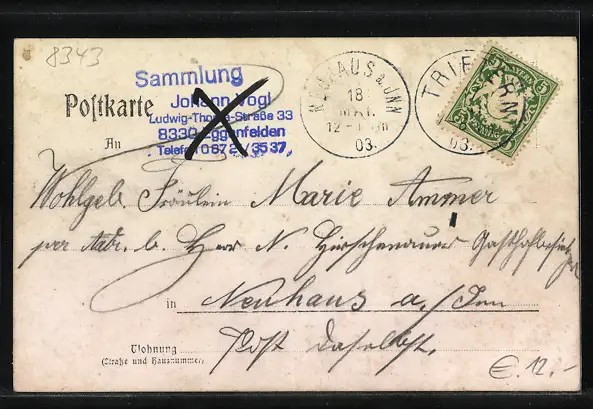 8343
Sammlung
Johann Vogl
Ludwig-Thoma-Straße 33
8330 Eggenfelden
Telefon 0872 / 3537
Postkarte
An
NEUHAUS a. INN
18
MAI.
12-1 Nm
03.
TRIFTERN
03.
BAYERN
5 5
Wohlgeb. Fräulein Marie Ammer
per Adr. b. Herr N. Hirschenauer Gasthofbesitzer
in Neuhaus a./Inn
Post daselbst.
Wohnung
(Straße und Hausnummer)
€ 12.-